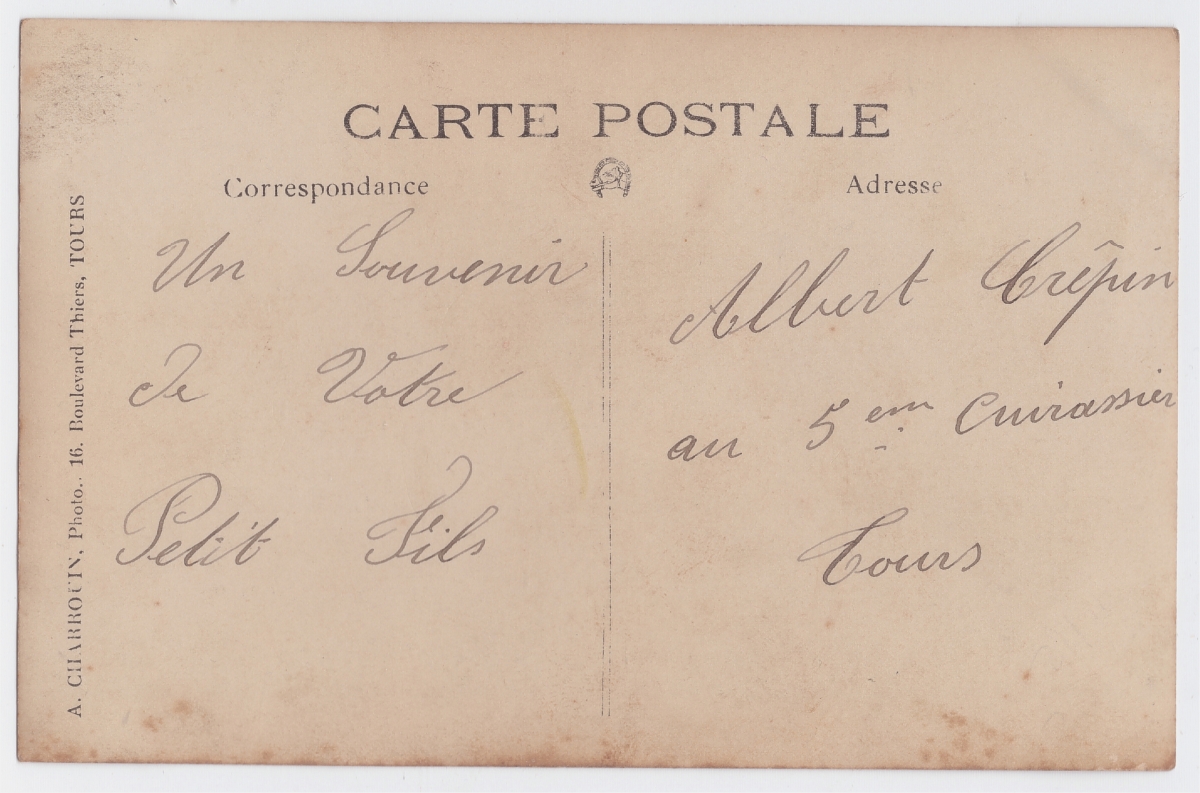 CARTE POSTALE
Correspondance
Adresse
A. CHARROUIN, Photo., 16. Boulevard Thiers, TOURS
Un Souvenir
de Votre
Petit Fils
Albert Crêpin
au 5 em Cuirassier
Tours